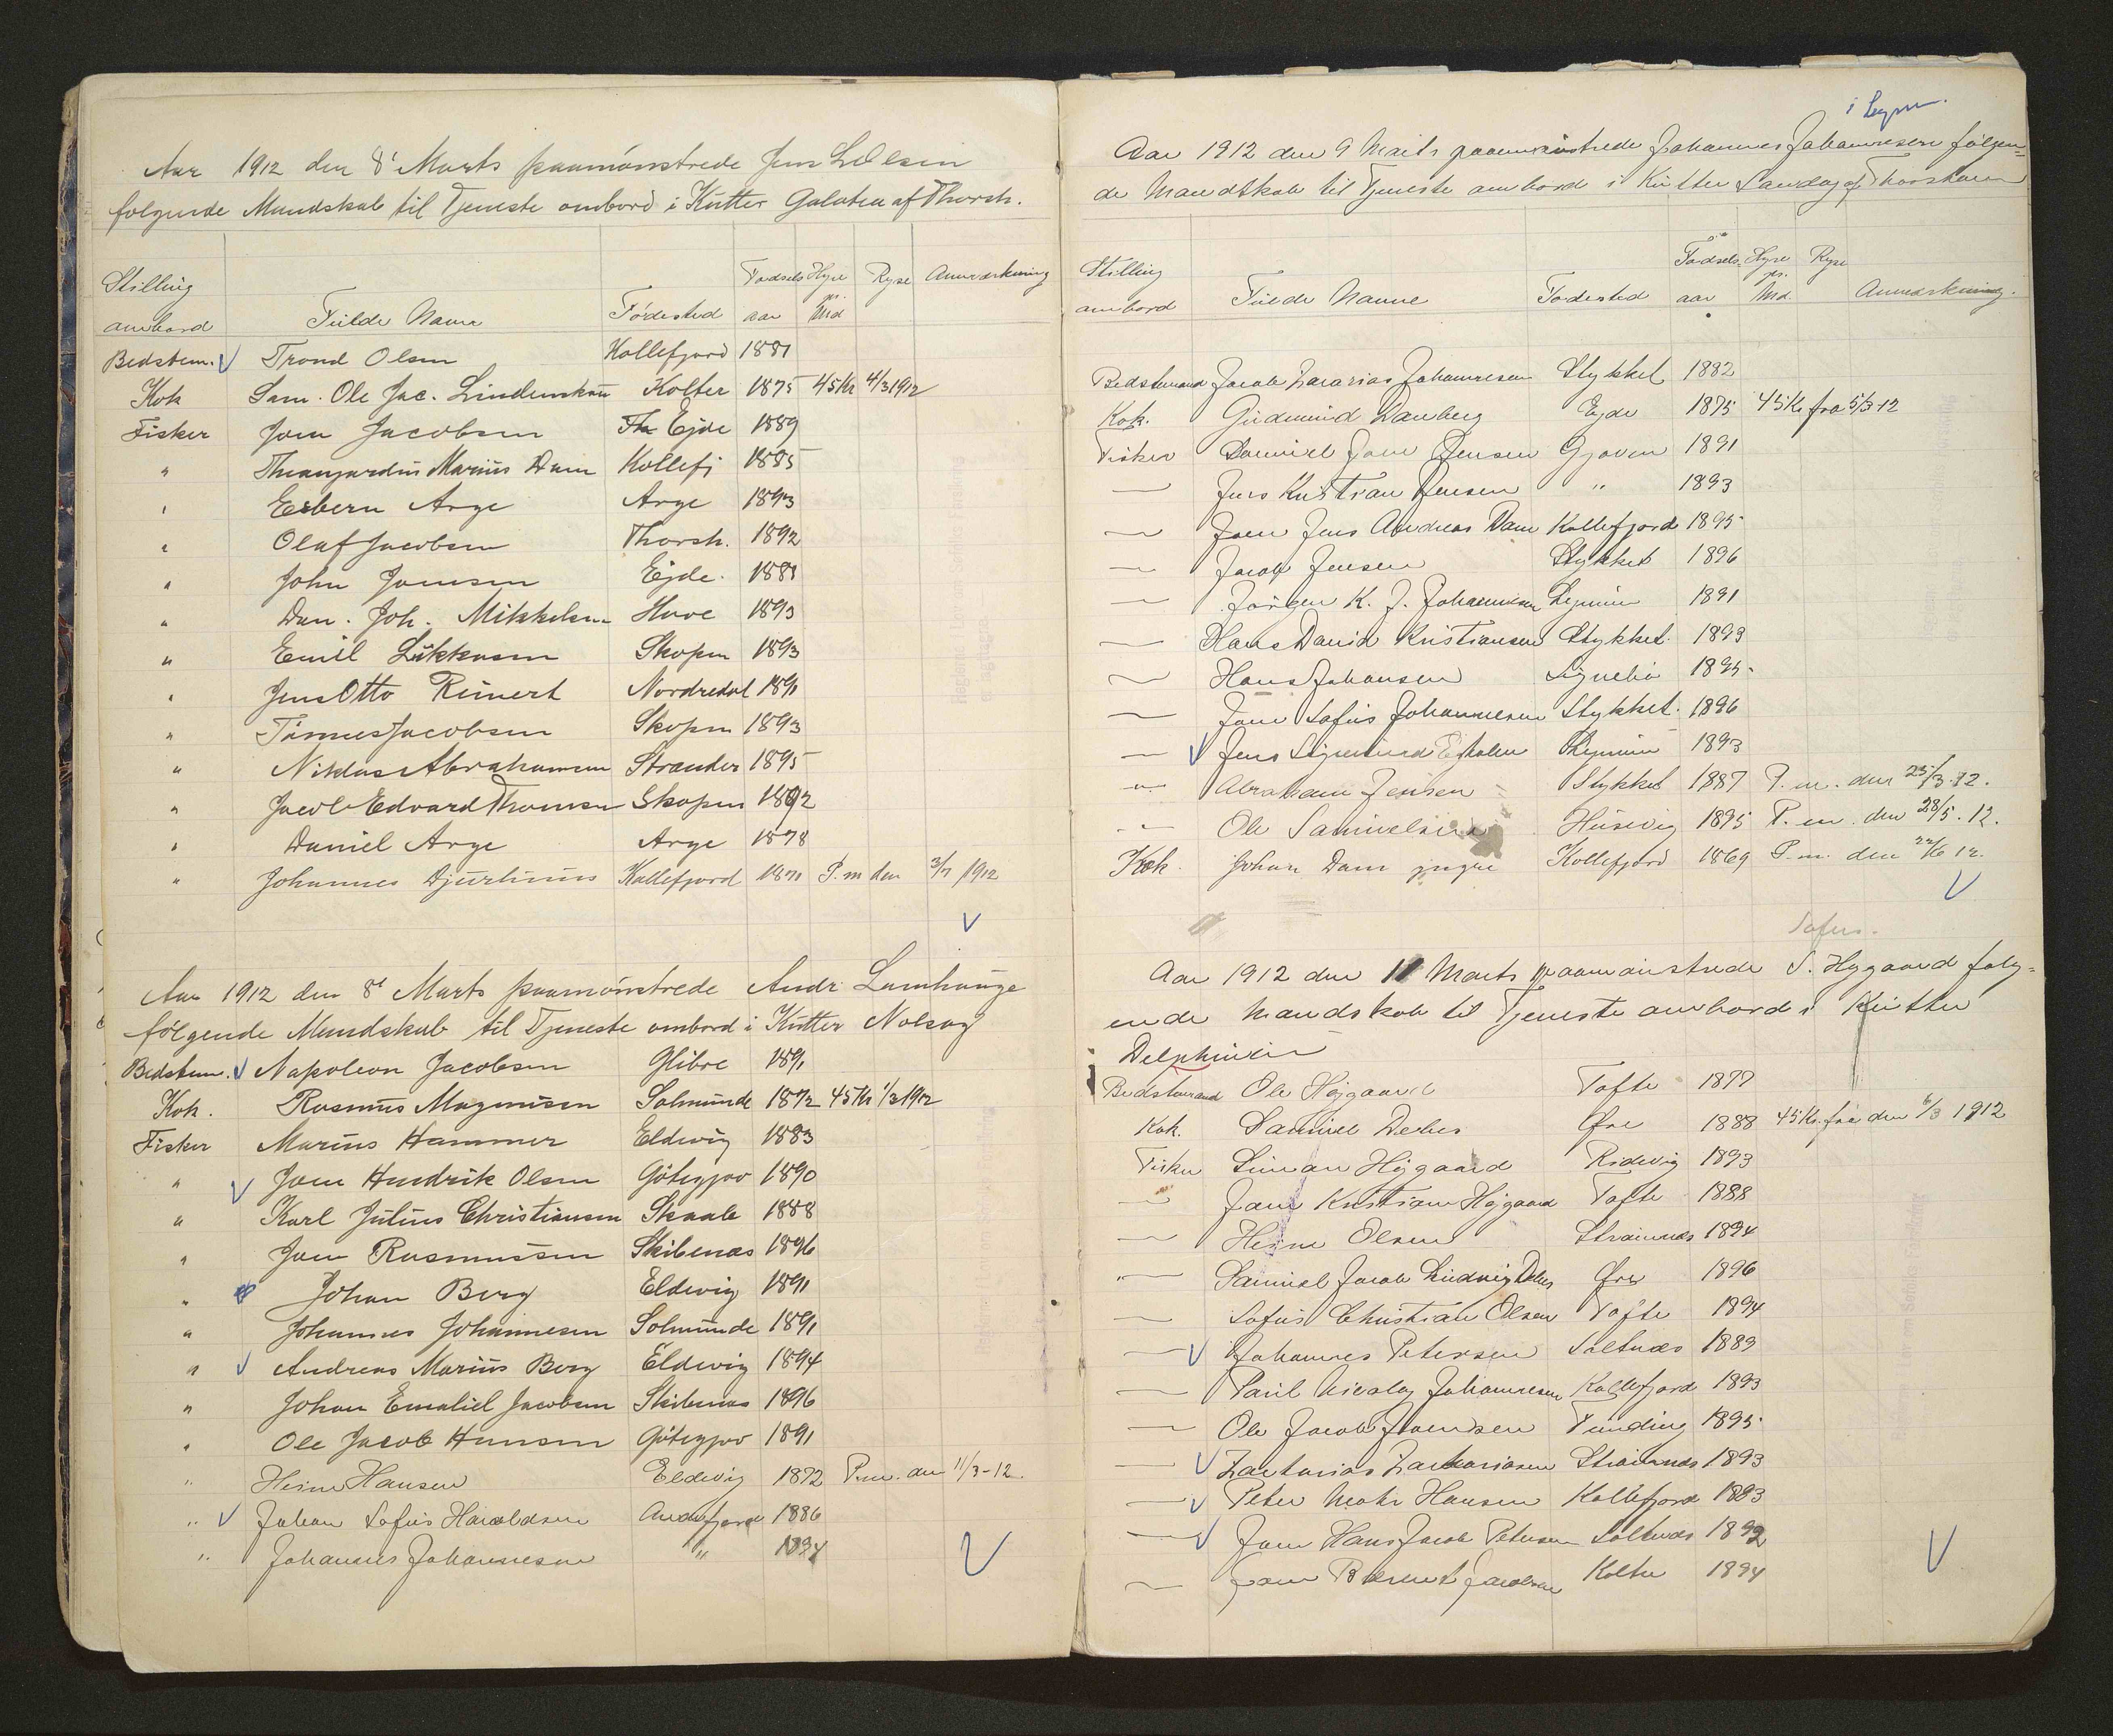 Aar 1912 den 8' Marts paamönstrede Jens Ol Olsen
følgende Mandskab til Tjeneste ombord i Kutter Galatea af Thorsh.
Stilling ombord Fulde Navn Fødested Fødselsaar Hyre pr. Md Ryse Anmærkning
Bedstem. Trond Olsen Kollefjord 1881
Kok Sam. Ole Jac. Lindenskov Kolter 1875 45 Kr 4/3 1912
Fisker Joen Jacobsen Ejde 1889
" Marius Dam Kollefj 1885
" Esbern Arge Arge 1893
" Olaf Jacobsen Thorsh. 1892
" John Joensen Ejde. 1881
" Dan. Joh. Mikkelsen Hove 1893
" Emil Lükkasen Skopen 1893
" Jens Otto Reinert Nordredal 1891
" Tönnes Jacobsen Skopen 1893
" Niklas Abrahamsen Strander 1895
" Jacob Edvard Thomsen Skopen 1892
" Daniel Arge Arge 1878
" Johannes Djurhuus Kollefjord 1871 P.m den 3/7 1912
Aar 1912 den 8' Marts paamönstrede Andr. Lamhauge
følgende Mandskab til Tjeneste ombord i Kutter Nolsøy
Bedstem. Napoleon Jacobsen Glibre 1891
Kok. Rasmus Magnusen Solmunde 1872 45 Kr 1/3 1912
Fisker Marius Hammer Eldevig 1883
" Joen Hendrik Olsen Götegjov 1890
" Karl Julius Christiansen Skaale 1888
" Joen Rasmussen Skibenæs 1896
" Johan Berg Eldevig 1891
" Johannes Johannesen Solmunde 1891
" Andreas Marius Berg Eldevig 1894
" Johan Emaliel Jacobsen Skibenæs 1896
" Ole Jacob Hansen Götegjov 1891
" Heine Hansen Eldevig 1872 P.m. den 11/3-12.
" Johan Sofus Haraldsen Andefjord 1886
" Johannes Johannesen " 1894
i Legnum.
Aar 1912 den 9 Marts paamönstrede Johannes Johannesen følgen=
de Mandskab til Tjeneste ombord i Kutter Sandoy af Thorshavn
Stilling ombord Fulde Navne Fødested Fødselsaar Hyre pr. Md. Ryse Anmærkning.
Bedstemand Jacob Zacarias Johannesen Stykket 1882
Kok. Gudmund Danberg Ejde 1875 45 Kr. fra 5/3-12
Fisker Daniel Joen Jensen Gjoven 1891
— Jens Kristian Jensen " 1893
— Joen Jens Andreas Dam Kollefjord 1895
— Jacob Jensen Stykket 1896
— Jörgen K. J. Johannesen Legnum 1891
— Hans David Kristiansen Stykket. 1893
— Hans Johansen Signebö 1895.
— Joen Sofus Johannesen Stykket. 1896
— Jens Sigmund Egholm Legnum 1893
— Abraham Jensen Stykket 1887 P.m. den 25/3.12.
— Ole Samuelsen Husevig 1895 P.m. den 28/5.12.
Kok. Johan Dam yngre Kollefjord 1869 P.m. den 22/6 12.
Sofus.
Aar 1912 den 11 Marts paamönstrede S. Højgaard følg=
ende Mandskab til Tjeneste ombord i Kutter
Delphinen
Bedstemand Ole Højgaard Tofte 1877
Kok. Samuel Debes Øre 1888 45 Kr. fra den 6/3 1912
Fisker Simon Højgaard Ridevig 1893
— Joen Kristian Højgaard Tofte 1888
— Heine Olsen Strænnæs 1894
— Samuel Jacob Ludvig Debes Øre 1896
— Sofus Christian Olsen Tofte 1894
— Johannes Petersen Saltnæs 1889
— Paul Nicolaj Johannesen Kollefjord 1893
— Ole Jacob Joensen Funding 1895.
— Zacharias Zachariasen Strænnæs 1893
— Peter Mohr Hansen Kollefjord 1883
— Joen Hans Jacob Petersen Saltnæs 1892
— Joen Berent Jacobsen Kolter 1894